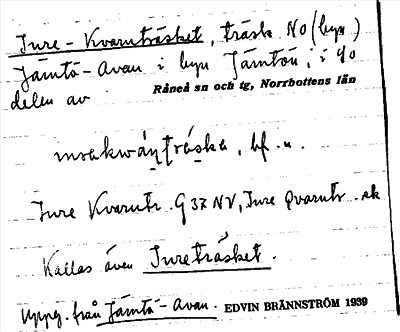 Inre-Kvarnträsket, träsk NO (byn)
Jämtö-Avan i byn Jämtön, i 
delen av Råneå sn och tg, Norrbottens län
bf. n.
Inre Kvarntr. G 37 NV, Inre Qvarntr. ek
Kallas även Inreträsket.
Uppg. från Jämtö-Avan. EDVIN BRÄNNSTRÖM 1939